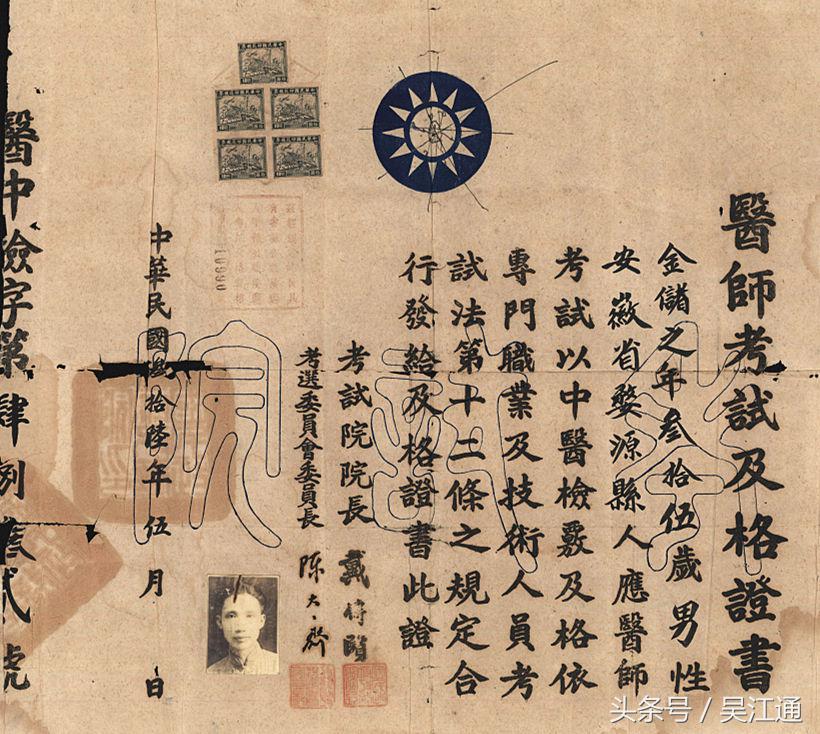 醫師考試及格證書
金儲之年叁拾伍歲男性
安徽省婺源縣人應醫師
考試以中醫檢覈及格依
專門職業及技術人員考
試法第十二條之規定合
行發給及格證書此證
考試院院長 戴傳賢
考選委員會委員長 陳大齊
中華民國叁拾陸年伍月 日
醫中檢字第肆捌 貳號
10990
头条号 / 吴江通